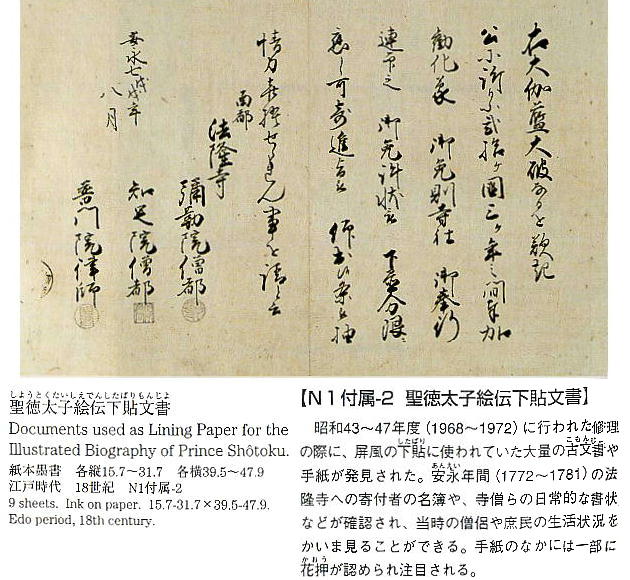 右大伽藍大破
公 ヶ國三ヶ年之間奉加
勧化蒙 御免則寺社 御奉行
連印之 御免許状 分限
應し可寄進
南都
法隆寺
彌勒院僧都
知足院僧都
普門院律師
安永七戊戌年
八月
しようとくたいしえでんしたばりもんじよ
聖徳太子絵伝下貼文書
Documents used as Lining Paper for the
Illustrated Biography of Prince Shôtoku.
紙本墨書 各縦15.7〜31.7 各横39.5〜47.9
江戸時代 18世紀 N1付属-2
9 sheets. Ink on paper. 15.7-31.7×39.5-47.9.
Edo period, 18th century.
【N1付属-2 聖徳太子絵伝下貼文書】
昭和43〜47年度(1968〜1972)に行われた修理
したばり こもんじよ
の際に、屏風の下貼に使われていた大量の古文書や
あんえい
手紙が発見された。安永年間(1772〜1781)の法
隆寺への寄付者の名簿や、寺僧らの日常的な書状
などが確認され、当時の僧侶や庶民の生活状況を
かいま見ることができる。手紙のなかには一部に
かおう
花押が認められ注目される。